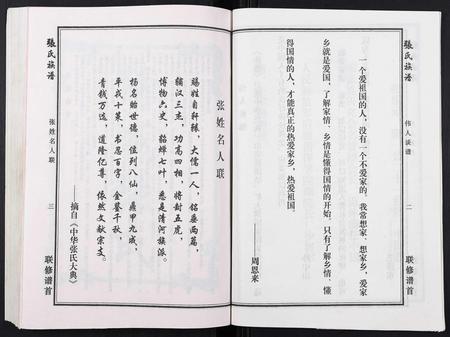 張氏族谱
伟人谈谱
二
联修谱首
一个爱祖国的人，没有一个不爱家的，我常想家、想家乡，爱家
乡就是爱国，了解家情、乡情是懂得国情的开始，只有了解乡情、懂
得国情的人，才能真正的热爱家乡，热爱祖国。
——周恩来
張氏族谱
张姓名人联
三
联修谱首
张姓名人联
赐姓自轩辕，大儒一人，铭垂两篇，
辅汉三杰，功高四相，将封五虎，
博物六史，貂蝉七叶，悉是清河族派。
扬名贻世德，位列八仙，鼎甲九成，
平戎十策，书忍百字，金鉴千秋，
青钱万选，道隆亿尊，依然文献宗支。
——摘自《中华张氏大典》